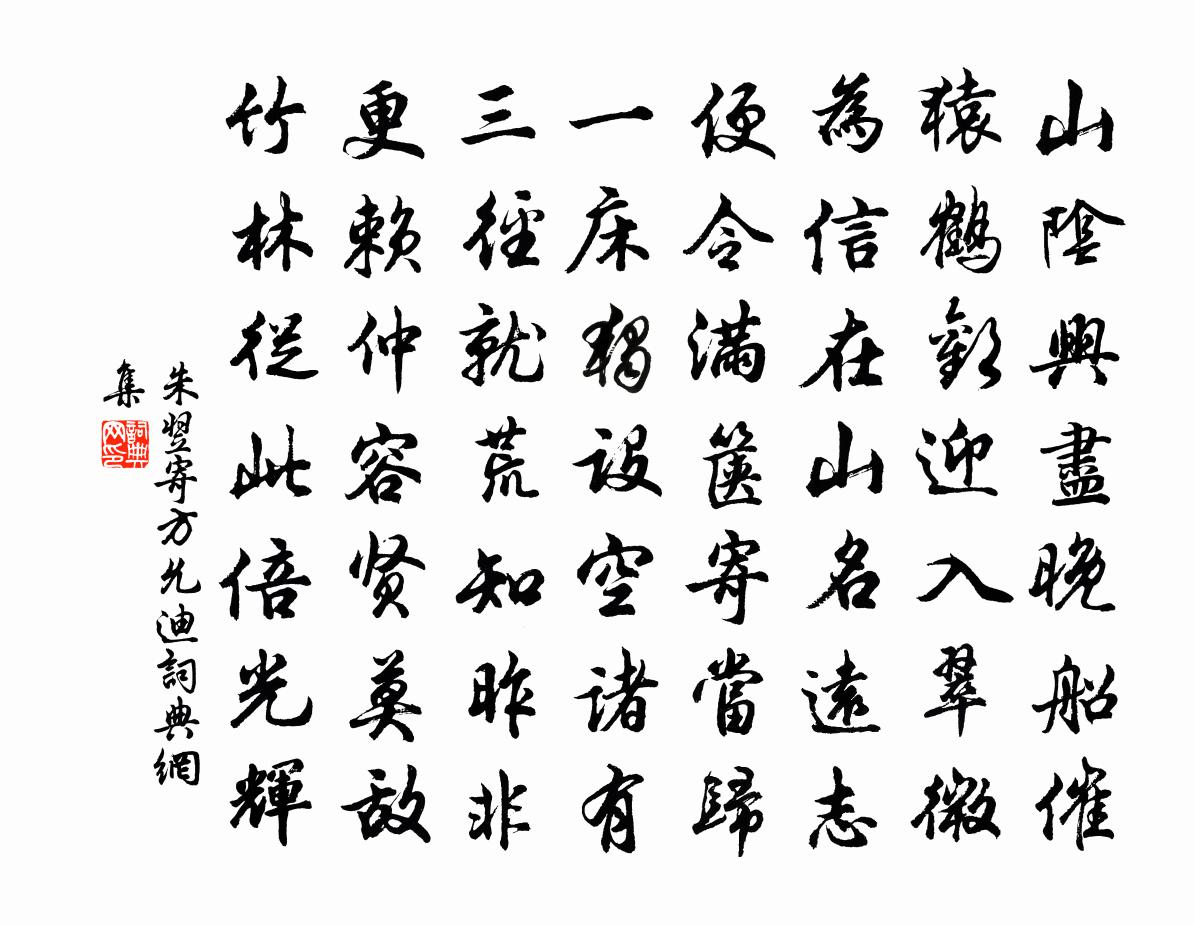 山陰興盡晚船催
猿鶴歡迎入翠微
為信在山名遠志
便令滿篋寄當歸
一床獨設空諸有
三徑就荒知昨非
更賴仲容賢莫敵
竹林從此倍光輝
朱翌寄方允迪詞典網
集
詞典网印